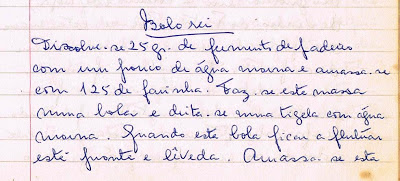 Bolo rei
Dissolve-se 25 gr. de fermento de padeiro
com um pouco de água morna e amassa-se
com 125 de farinha. Faz-se esta massa
numa bola e deita-se numa tigela com água
morna. Quando esta bola ficar a flutuar
está pronta e lêveda. Amassa-se esta